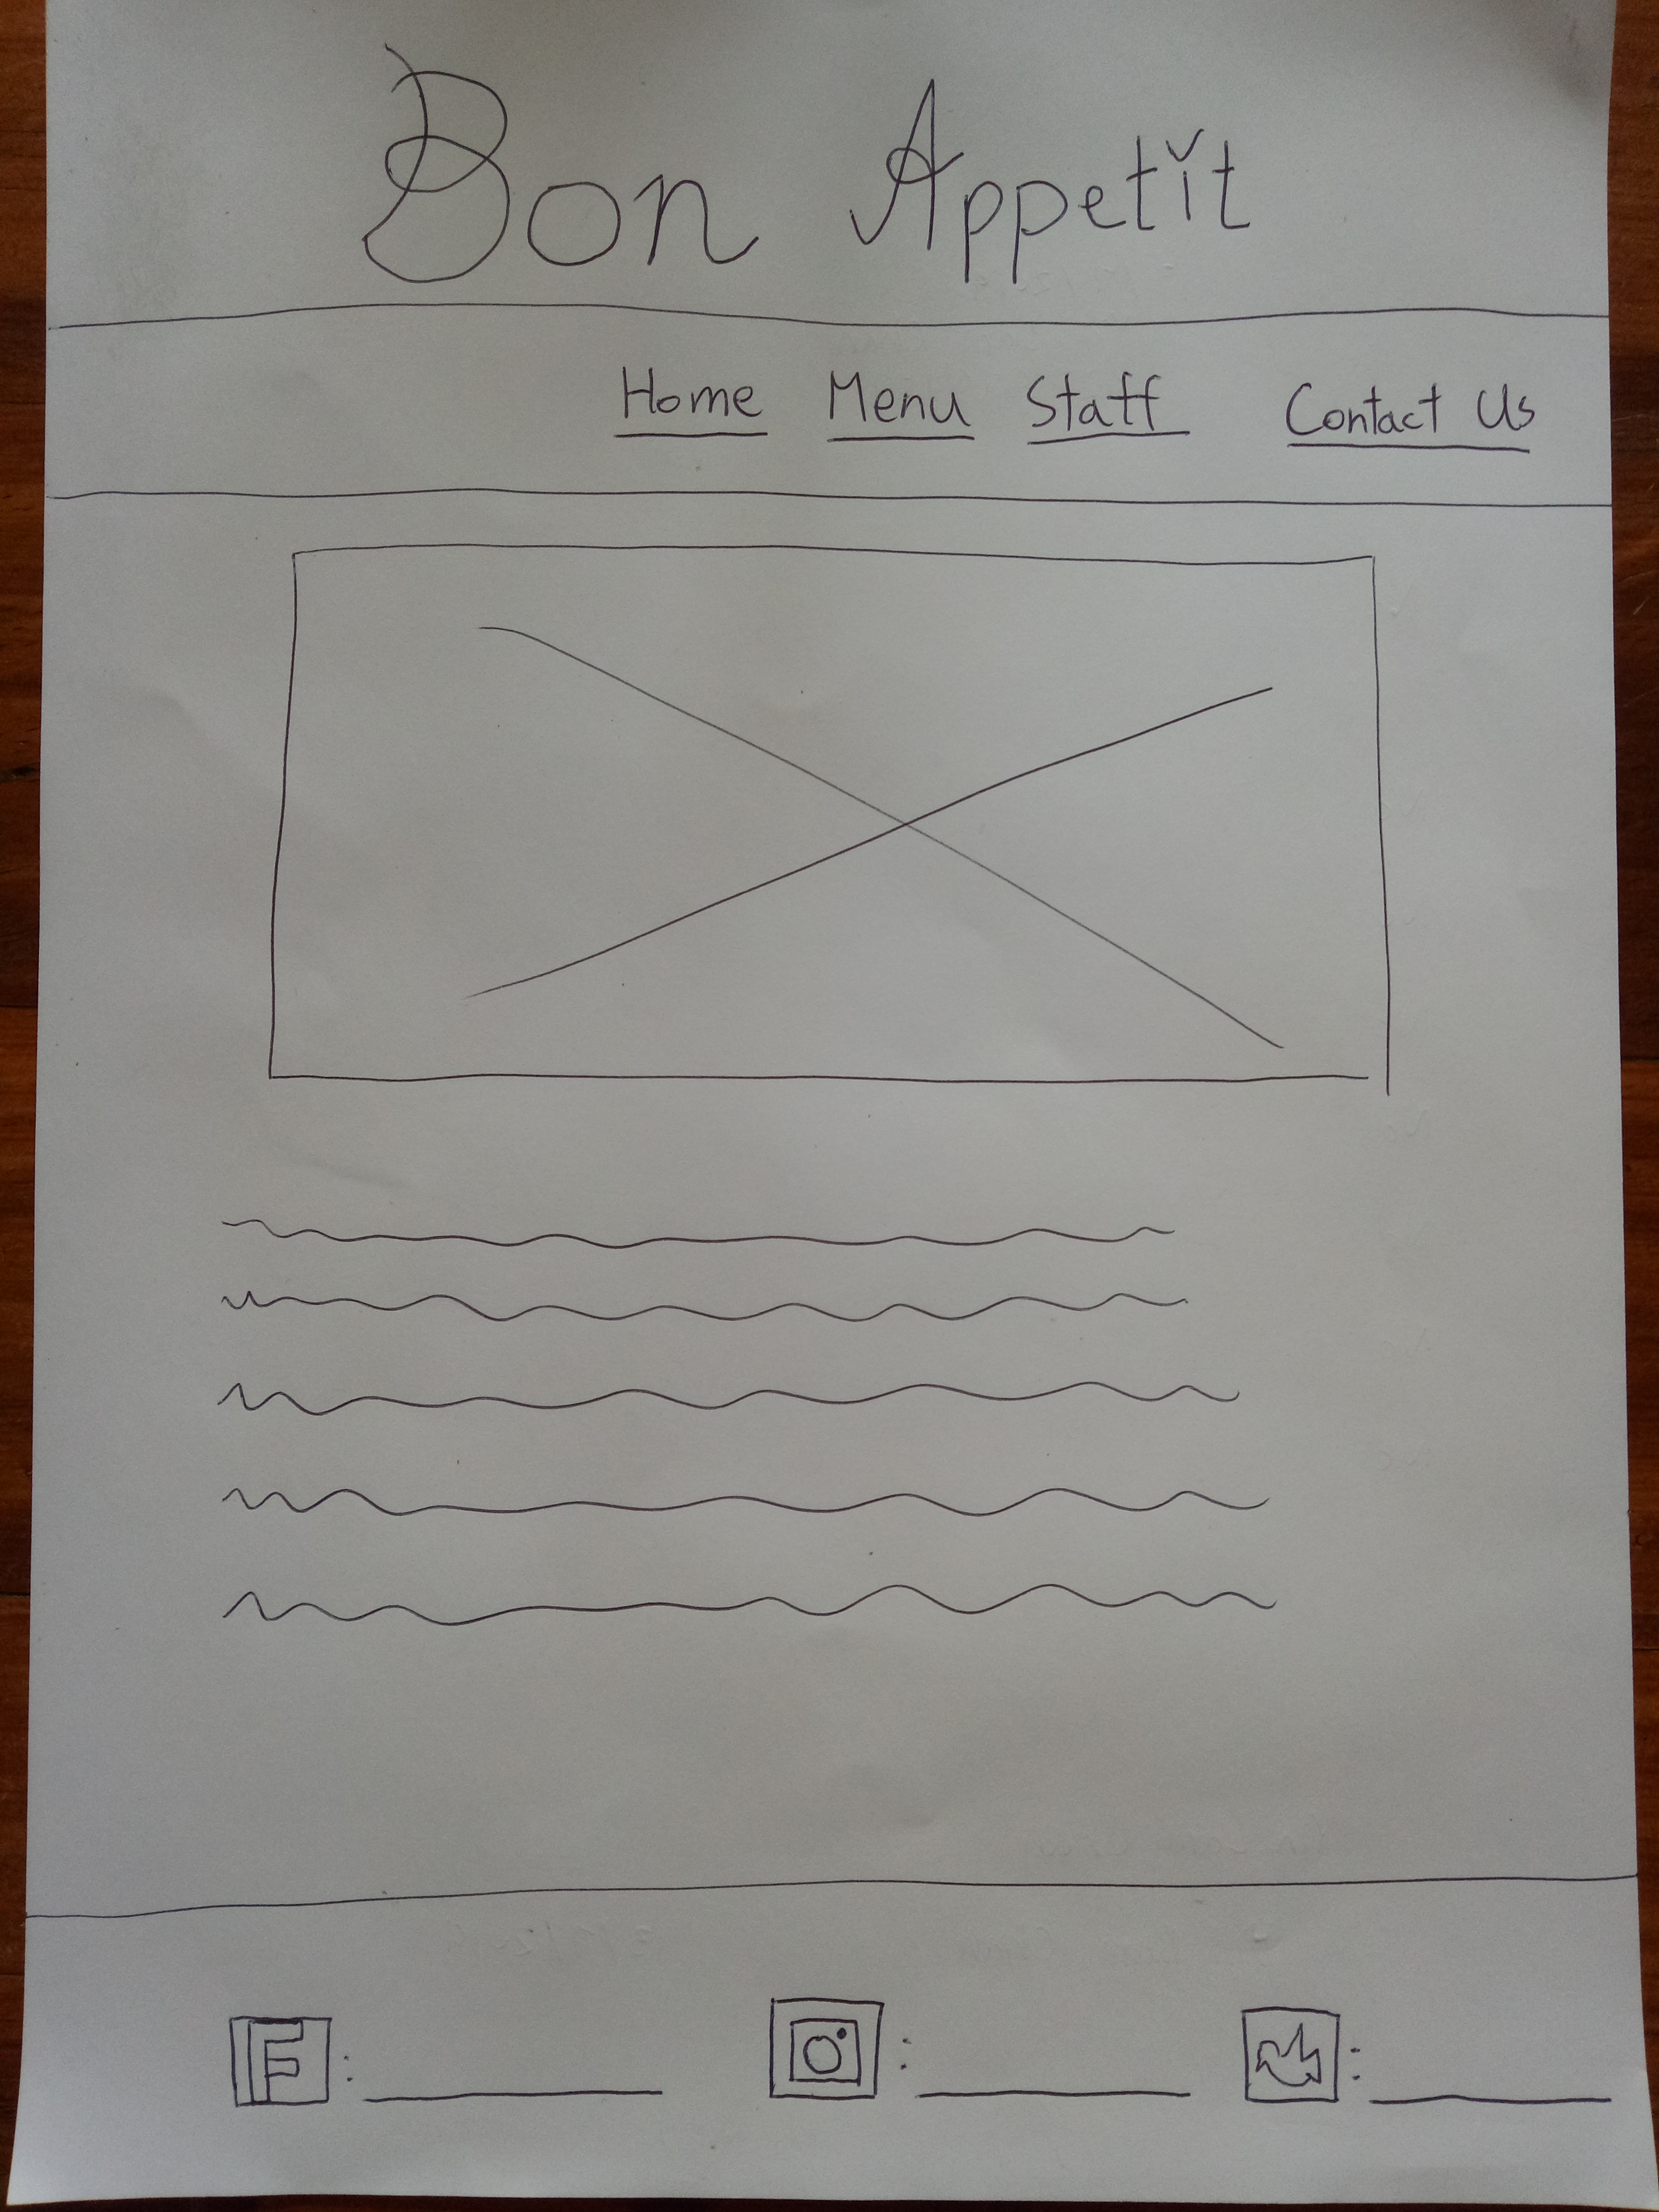 Bon Appetǐt
Home Menu Staff Contact Us
F : : :